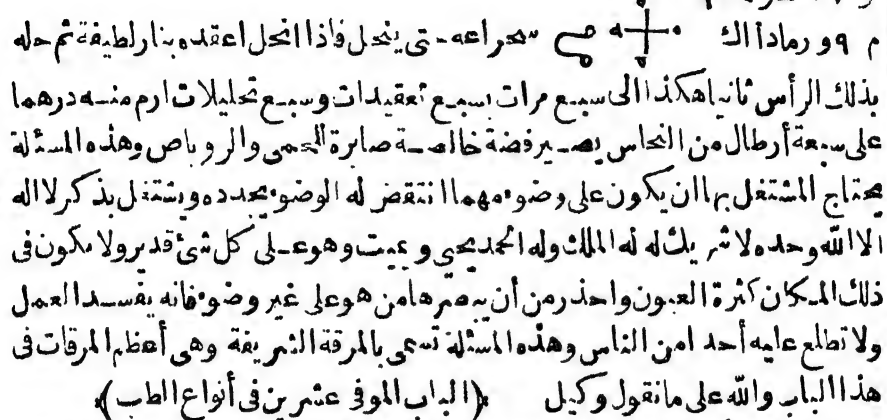 م ٩ و رمادا اك سحراعه حتى ينحل فاذا انحل اعقده بنار لطيفة ثم حله
بذلك الرأس ثانيا هكذا الى سبع مرات بسبع تعقيدات وسبع تحليلات ارم منه درهما
على سبعة أرطال من النحاس يصير فضة خالصة صابرة الحمى والروباص وهذه المسئلة
يحتاج المشتغل بها ان يكون على وضوء مهما انتقض له الوضوء يجدده ويشتغل بذكر لا اله
الا الله وحده لا شريك له له الملك وله الحمد يحيي ويميت وهو على كل شئ قدير ولا يكون فى
ذلك المكان كثرة العيون واحذر من أن يبصرها من هو على غير وضوء فانه يفسد العمل
ولا تطلع عليه أحدا من الناس وهذه المسئلة تسمى بالمرقة الشريفة وهى أعظم المرقات فى
هذا الباب والله على ما نقول وكيل (الباب الموفى عشرين فى أنواع الطب)